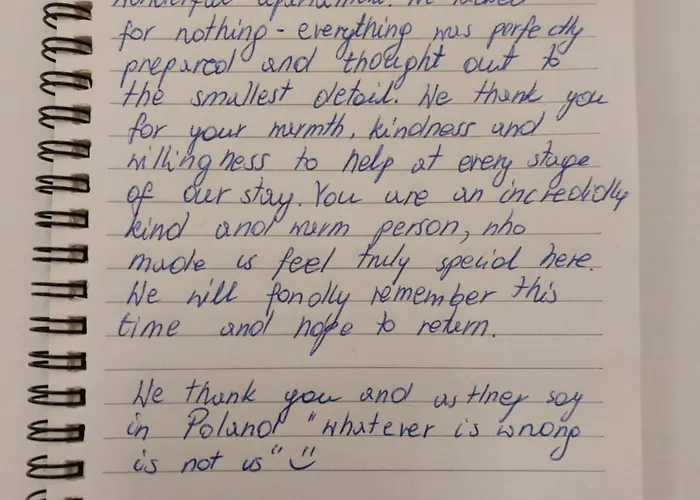 wonderful apartment. We lacked
for nothing - everything was perfectly
prepared and thought out to
the smallest detail. We thank you
for your warmth, kindness and
willingness to help at every stage
of our stay. You are an incredidly
kind and warm person, who
made us feel truly special here.
We will fondly remember this
time and hope to return.
We thank you and as they say
in Poland "whatever is wrong
is not us" :)